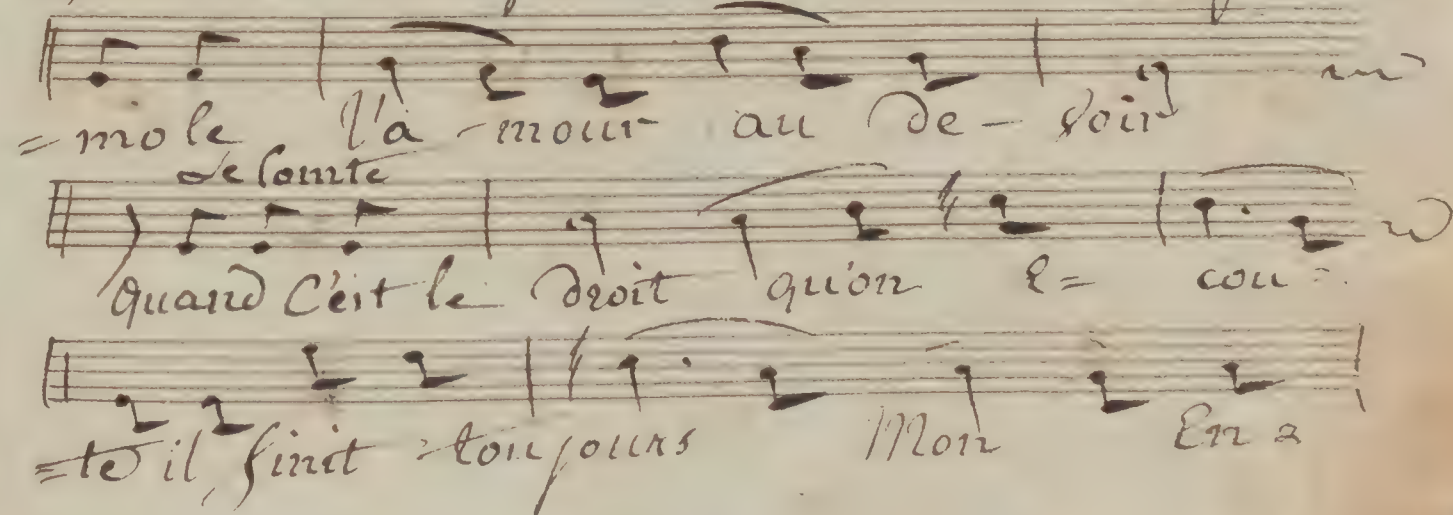 =mole l'a-mour au de-voir
Le Comte
quand c'est le droit qu'on E= cou=
=te il finit toujours Mon En=